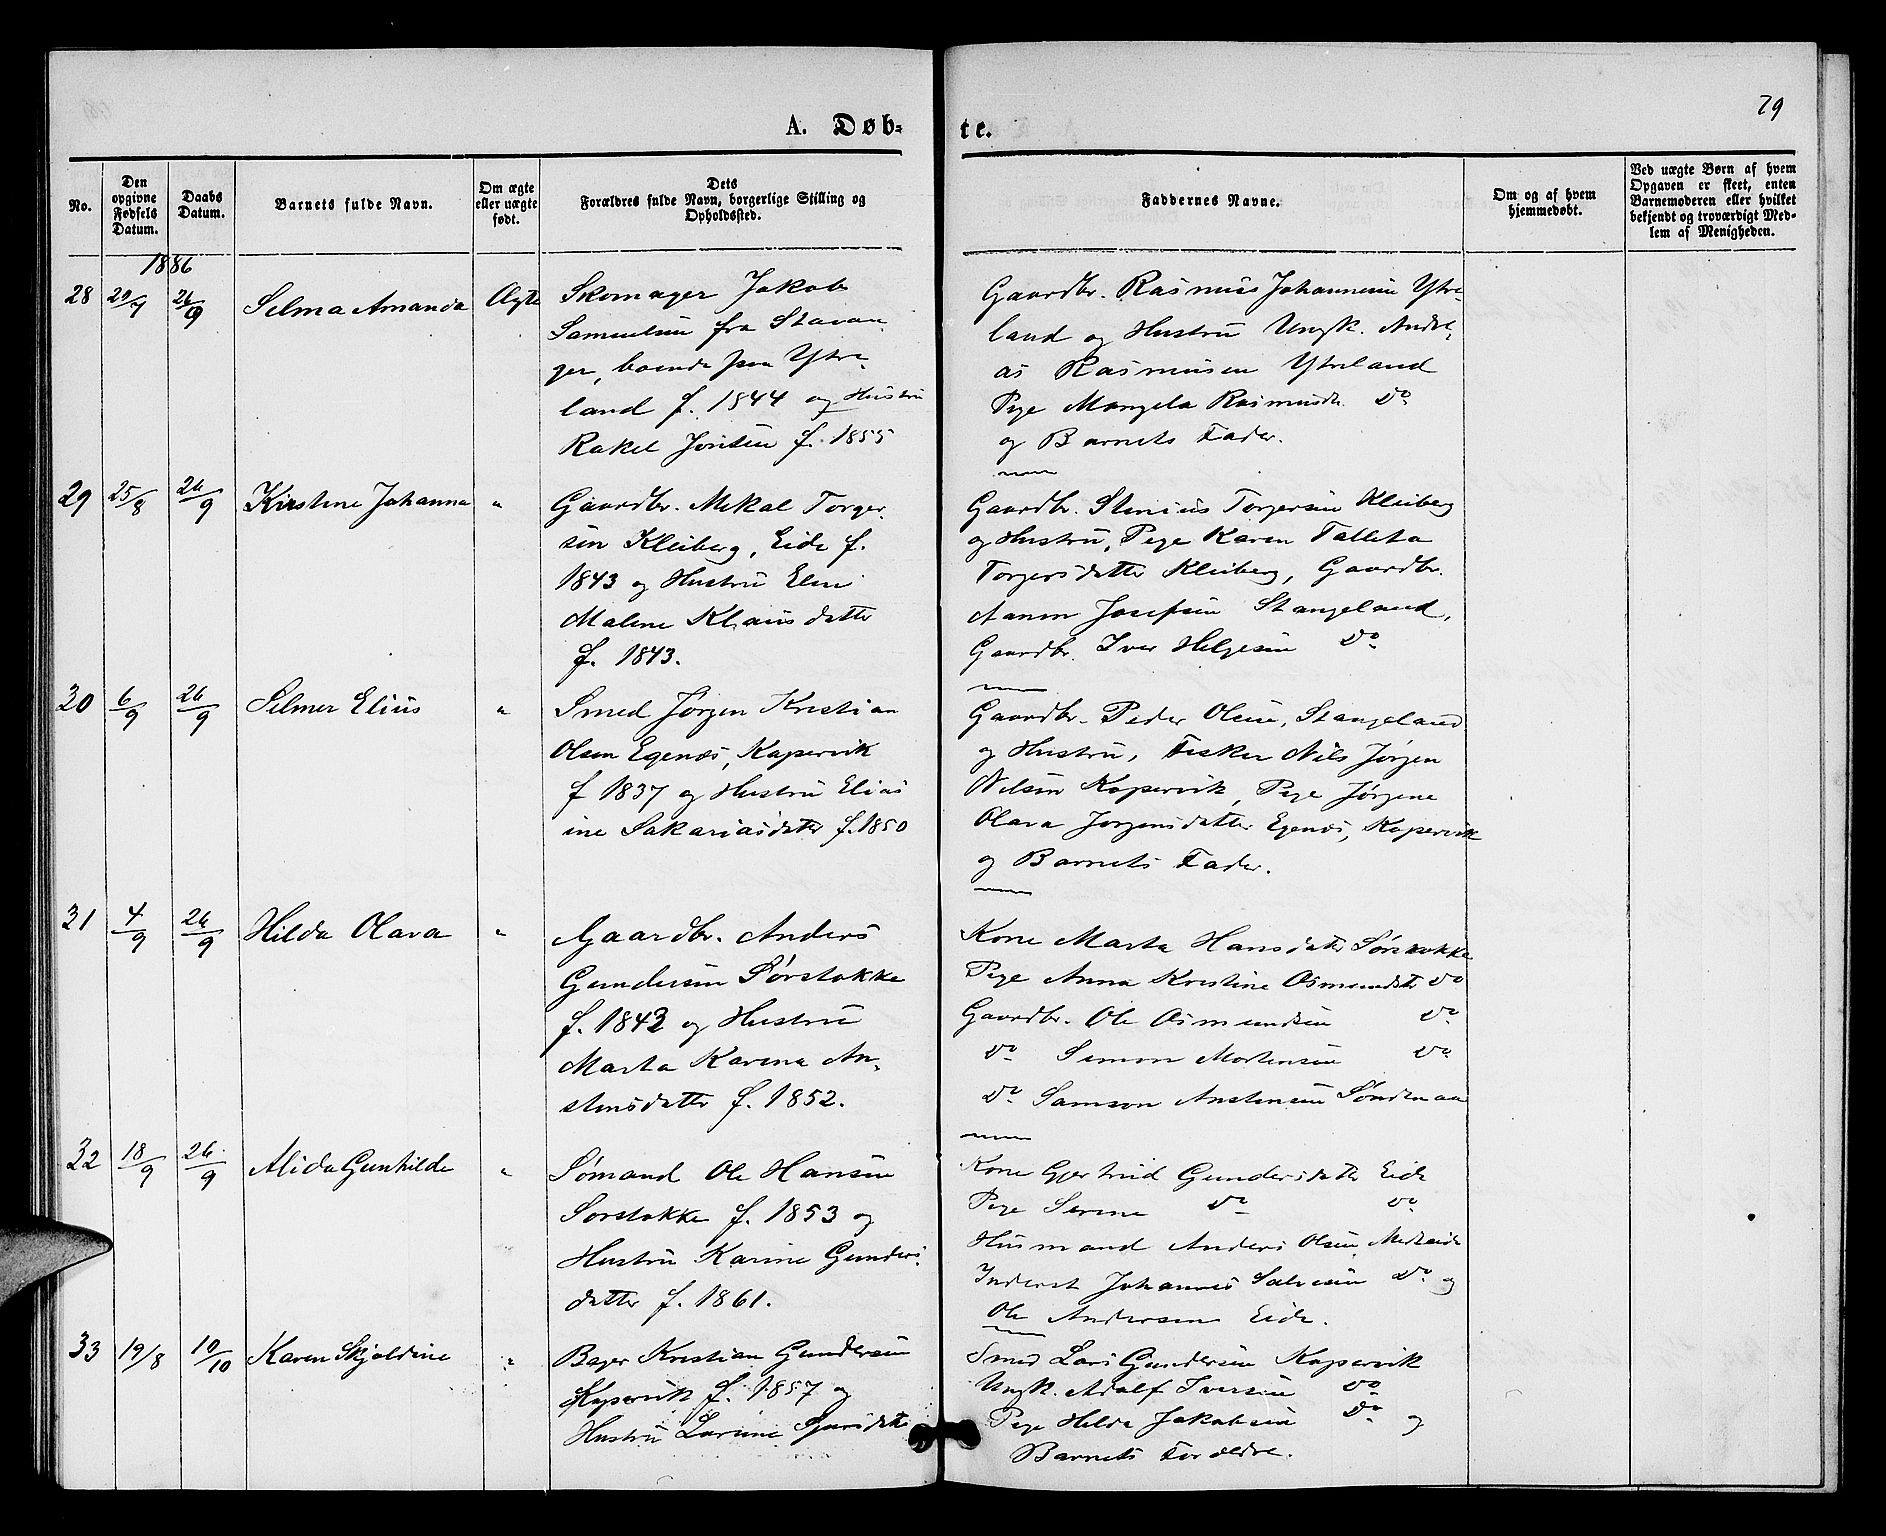 79
A. Døb-
te.
No.
Den opgivne Fødsels Datum.
Daabs Datum.
Barnets fulde Navn.
Om ægte eller uægte født.
Dets Forældres fulde Navn, borgerlige Stilling og Opholdssted.
Faddernes Navne.
Om og af hvem hjemmedøbt.
Ved uægte Børn af hvem Opgaven er skeet, enten Barnemoderen eller hvilket bekjendt og troværdigt Medlem af Menigheden.
1886
28 26/9 Selma Amanda Ægte
Skomager Jakob
Samuelsen fra Stavan-
ger, boende paa Ytre-
land f. 1844 og Hustru
Rakel f. 1855
Gaardbr. Rasmus Johannesen Ytre-
land og Hustru Ungk. Andre-
as Rasmusen Ytreland
Pige Mangela Rasmusdt. Do
og Barnets Fader.
29 25/8 26/9 Kirstine Johanna "
Gaardbr. Mikal Torger-
sen Kleiberg, Eide f.
1843 og Hustru Elen
Malene Klausdatter
f. 1843.
Gaardbr. Stinius Torgersen Kleiberg
og Hustru, Pige Karen Talleta
Torgersdatter Kleiberg, Gaardbr.
Aanen Josefsen Stangeland,
Gaardbr. Iver Helgesen Do
30 6/9 26/9 Selmer Elius "
Smed Jørgen Kristian
Olsen Egenæs, Kopervik
f 1837 og Hustru Elias
ine Sakariasdatter f. 1850
Gaardbr. Peder Olsen, Stangeland
og Hustru, Fisker Nils Jørgen
Nilsen Kopervik, Pige Jørgene
Olava Jørgensdatter Egenæs, Kopervik
og Barnets Fader.
31 4/9 26/9 Hilda Olava "
Gaardbr. Anders
Gundersen Sørstokke
f. 1843 og Hustru
Marta Karina An-
stensdatter f. 1852.
Kone Marta Hansdatter Sørstokke
Pige Anna Kristine Osmundsdt Do
Gaardbr. Ole Osmundsen Do
Do Simon Mortensen Do
Do Samson Anstensen Søndenaa
32 18/9 26/9 Alida Gunhilde "
Sømand Ole Hansen
Sørstokke f. 1853 og
Hustru Karine Gunders-
datter f. 1861.
Kone Gjertrud Gundersdatter Eide
Pige Serine Do Do
Husmand Anders Olsen
Inderst Johannes Salvesen Do og
Ole Andersen Eide.
33 19/8 10/10 Karen Skjoldine "
Bager Kristian Gundersen
Kopervik f. 1857 og
Hustru Larine
Smed Lars Gundersen Kopervik
Ungk. Adolf Iversen Do
Pige Hilda Jakobsen Do og
Barnets Forældre.